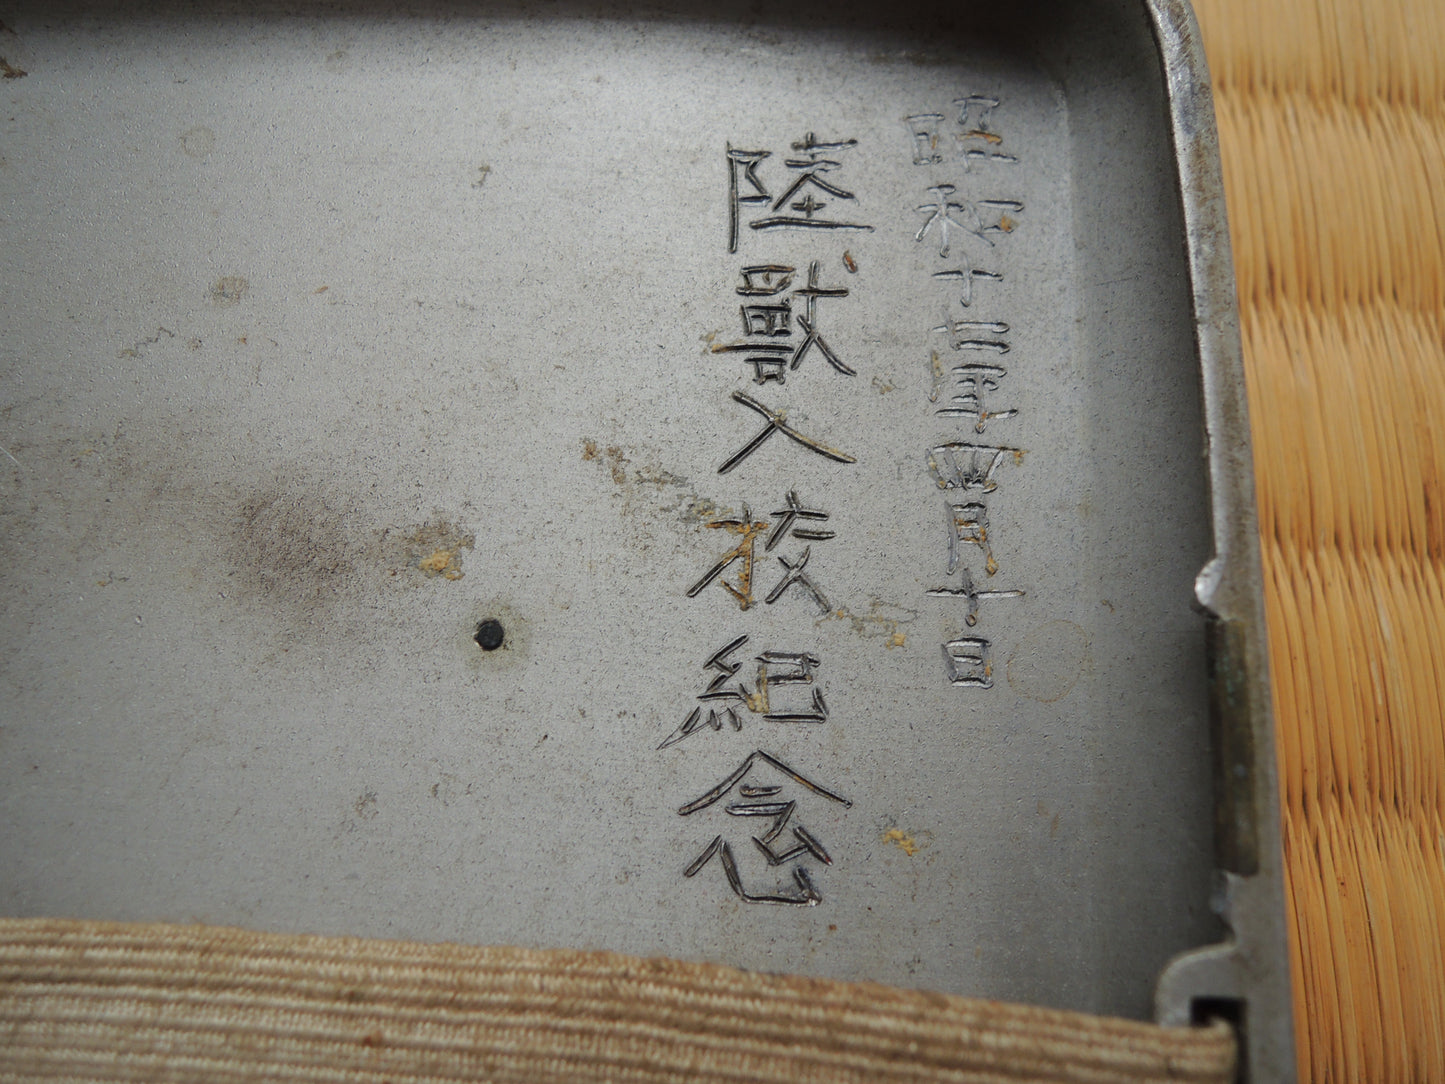 昭和十二年四月十日
陸獸入校紀念